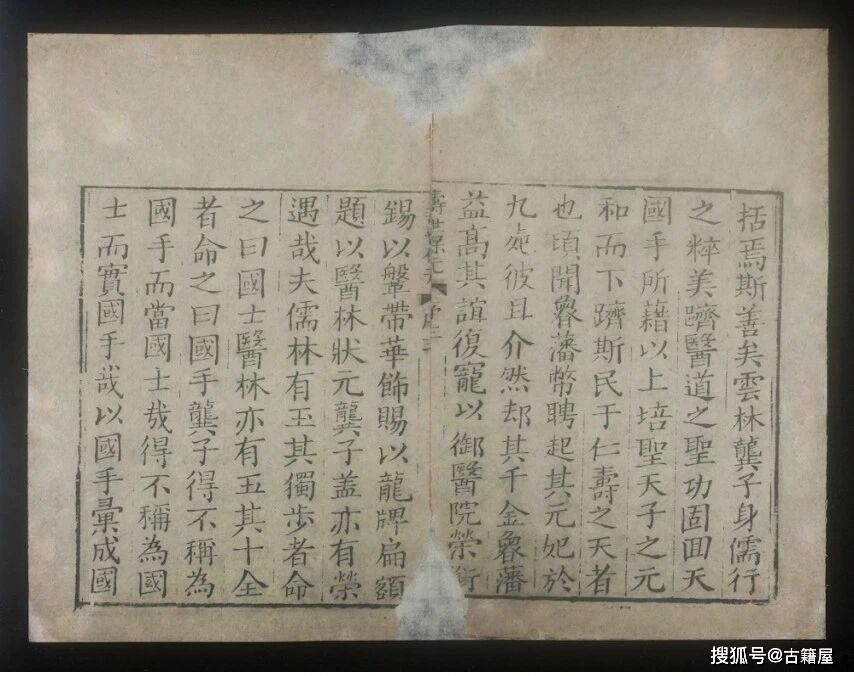 括焉斯善矣雲林龔子身儒行
之粹美躋醫道之聖功固回天
國手所藉以上培聖天子之元
和而下躋斯民于仁壽之天者
也頃聞魯藩幣聘起其元妃於
九死彼且介然却其千金魯藩
益髙其誼復寵以御醫院榮銜
壽世保元 序 三
錫以鞶帶華飾賜以龍牌扁額
題以醫林狀元龔子盖亦有榮
遇哉夫儒林有五其獨步者命
之曰國士醫林亦有五其十全
者命之曰國手龔子得不稱為
國手而當國士哉得不稱為國
士而實國手哉以國手彙成國
搜狐号@古籍屋